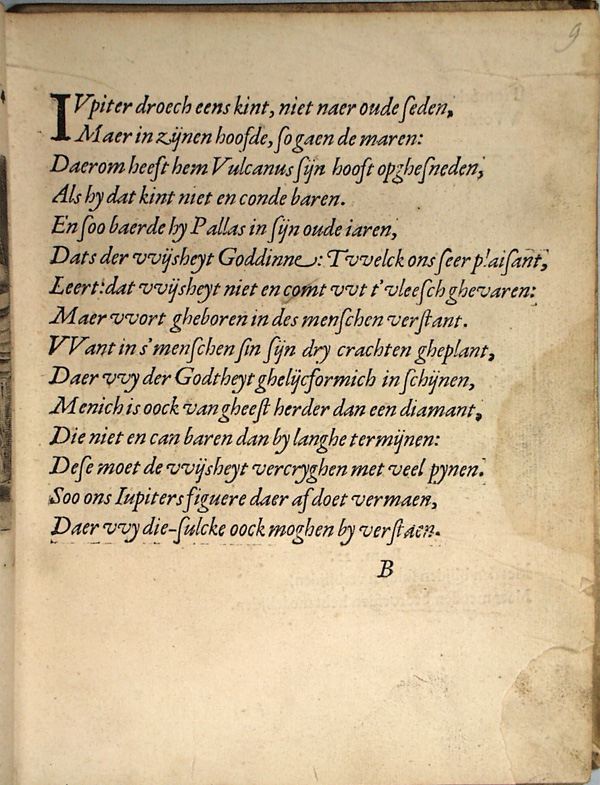 9
IVpiter droech eens kint, niet naer oude ſeden,
Maer in zijnen hoofde, ſo gaen de maren:
Daerom heeft hem Vulcanus ſijn hooft opgheſneden,
Als hy dat kint niet en conde baren.
En ſoo baerde hy Pallas in ſijn oude iaren,
Dats der vvijsheyt Goddinne: Tvvelck ons ſeer plaiſant,
Leert: dat vvijsheyt niet en comt vvt t'vleeſch ghevaren:
Maer vvort gheboren in des menſchen verſtant.
VVant in s'menſchen ſin ſijn dry crachten gheplant,
Daer vvy der Godtheyt ghelijcformich in ſchijnen,
Menich is oock van gheeſt herder dan een diamant,
Die niet en can baren dan by langhe termijnen:
Deſe moet de vvijsheyt vercryghen met veel pynen.
Soo ons Iupiters figuere daer af doet vermaen,
Daer vvy die-ſulcke oock moghen by verſtaen.
B